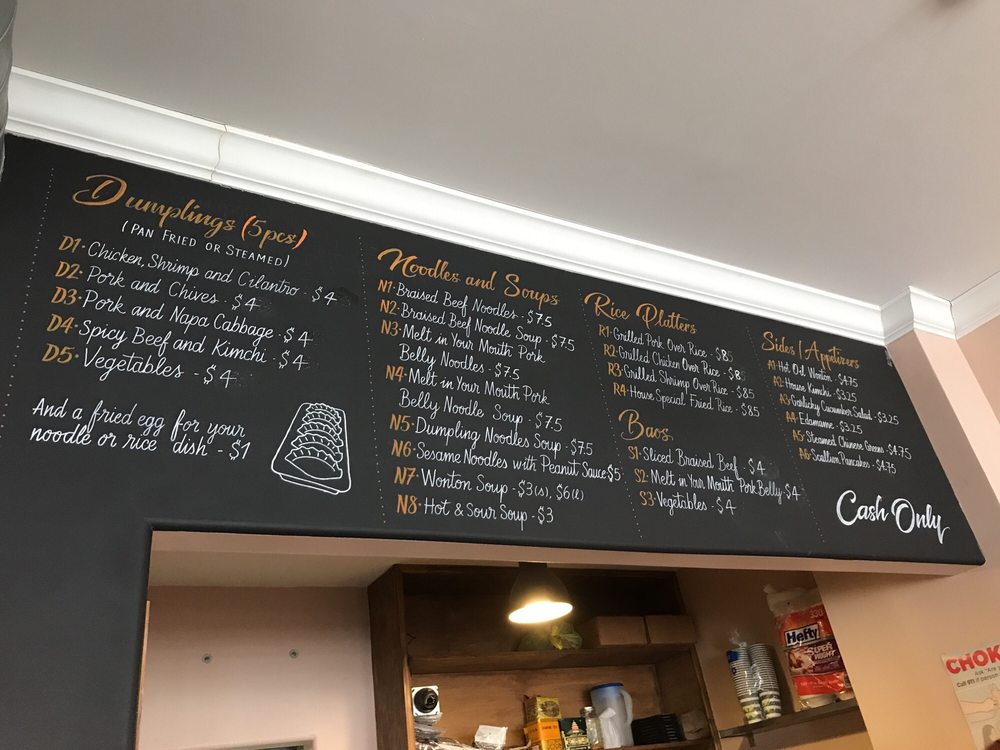 Dumplings (5pcs)
(PAN FRIED OR STEAMED)
D1·Chicken, Shrimp and Cilantro · $4
D2·Pork and Chives · $4
D3·Pork and Napa Cabbage · $4
D4·Spicy Beef and Kimchi · $4
D5·Vegetables · $4
And a fried egg for your
noodle or rice dish - $1
Noodles and Soups
N1·Braised Beef Noodles · $7.5
N2·Braised Beef Noodle Soup · $7.5
N3·Melt in Your Mouth Pork
Belly Noodles · $7.5
N4·Melt in Your Mouth Pork
Belly Noodle Soup · $7.5
N5·Dumpling Noodles Soup · $7.5
N6·Sesame Noodles with Peanut Sauce $5
N7·Wonton Soup · $3(s), $6(l)
N8·Hot & Sour Soup · $3
Rice Platters
R1·Grilled Pork Over Rice · $8.5
R2·Grilled Chicken Over Rice · $8
R3·Grilled Shrimp Over Rice · $8.5
R4·House Special Fried Rice · $8.5
Baos
S1·Sliced Braised Beef · $4
S2·Melt in Your Mouth Pork Belly · $4
S3·Vegetables · $4
Sides/Appetizers
A1·Hot Oil Wonton · $4.75
A2·House Kimchi · $3.25
A3·Garlicky Cucumber Salad · $3.25
A4·Edamame · $3.25
A5·Steamed Chinese Greens · $4.75
A6·Scallion Pancakes · $4.75
Cash Only
Hefty
SUPER
WEIGHT
CHOK
Call 911 if person